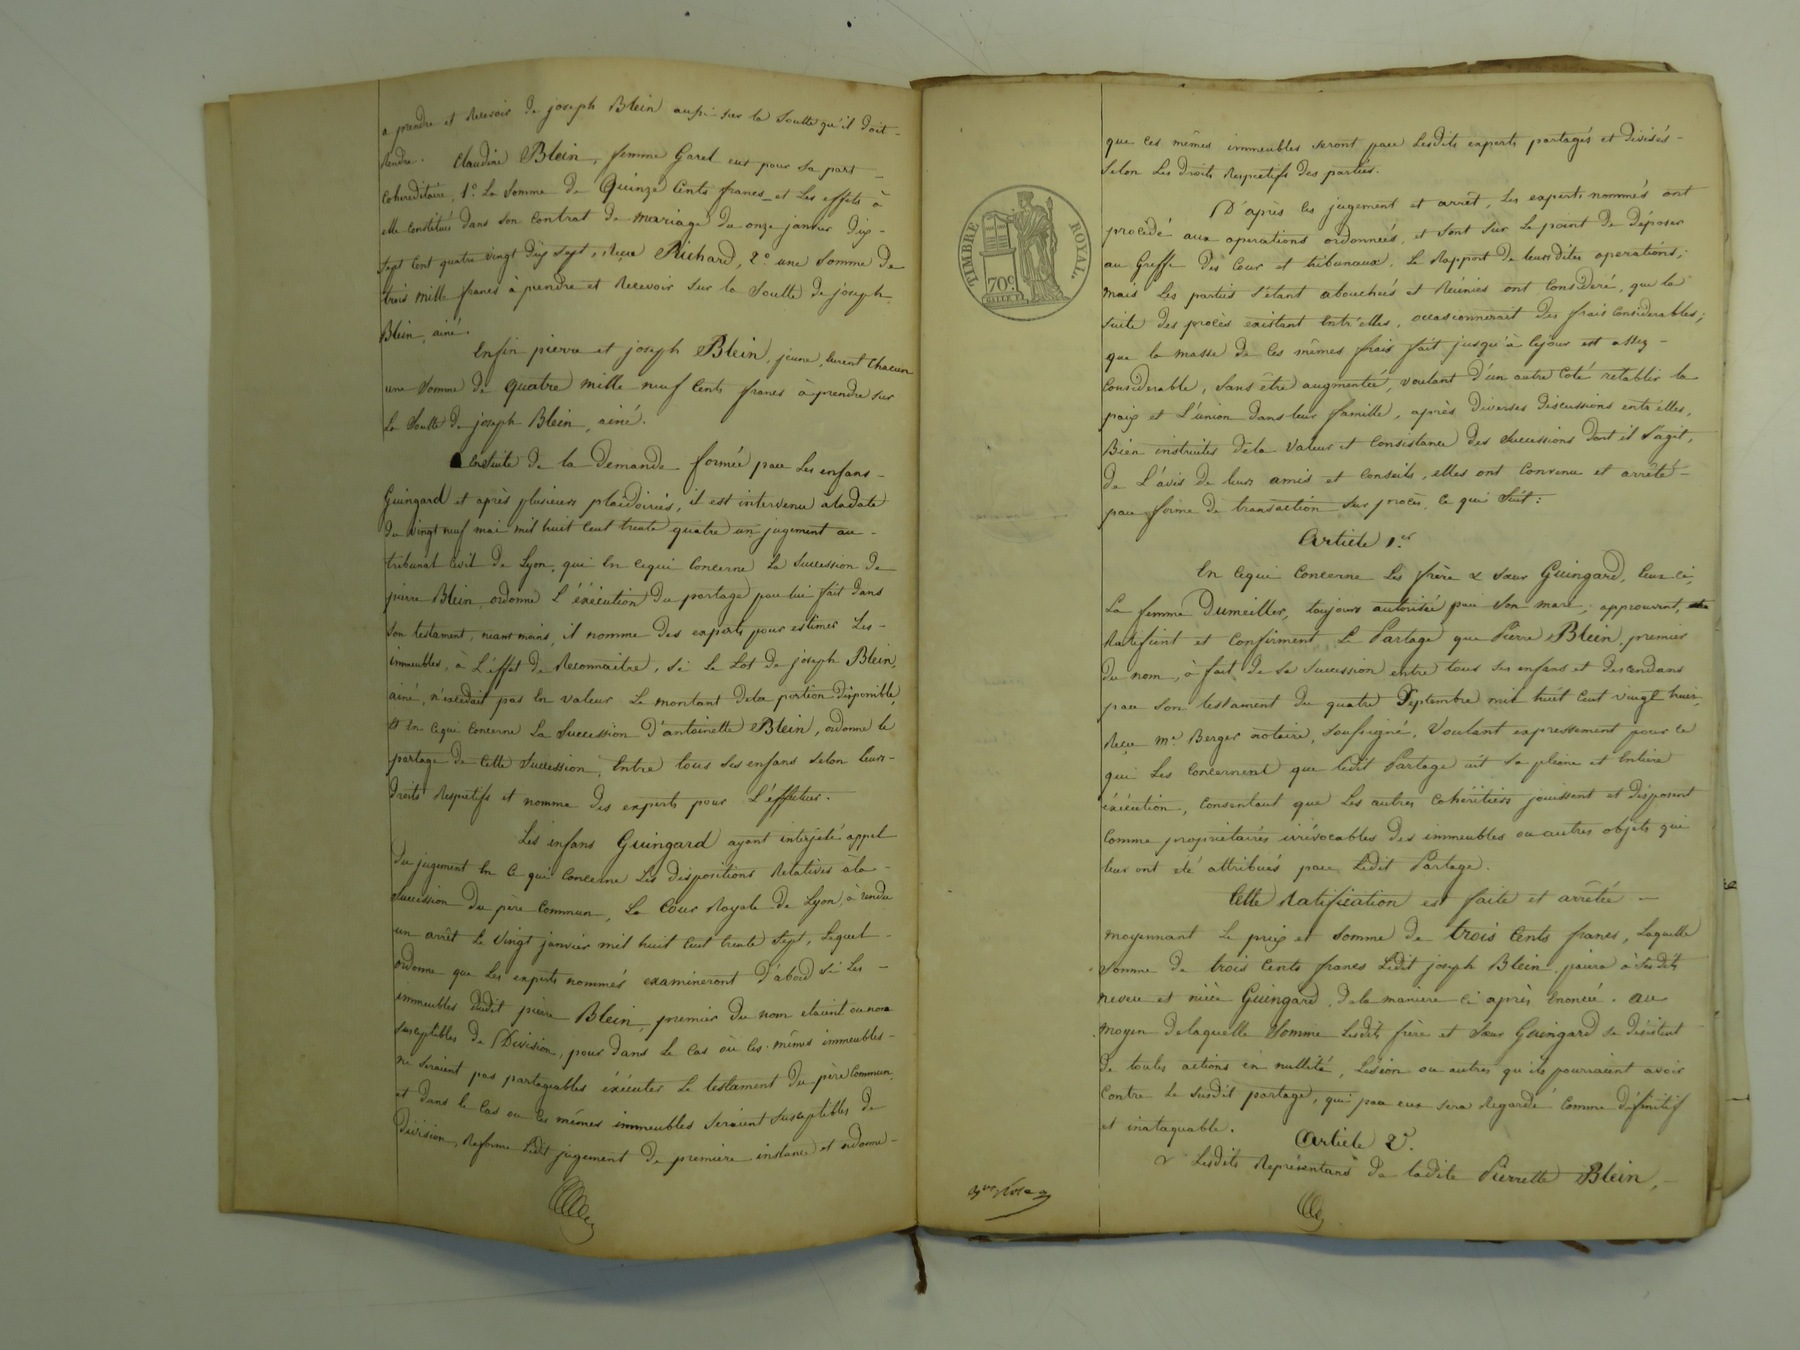 a prendre et Recevoir de joseph Blein aussi sur la Soulte qu'il doit -
Rendre. Claudine Blein, femme Garel eut pour sa part -
Cohereditaire, 1.° La Somme de Quinze Cents francs et Les effets à
elle Constitués dans son Contrat de mariage du onze janvier dix -
sept Cent quatre vingt dix sept, Reçu Richard, 2.° une Somme de
trois mille francs à prendre et Recevoir sur la Soulte de joseph
Blein, ainé.
Enfin pierre et joseph Blein, jeune, eurent Chacun
une Somme de quatre mille neuf Cents francs à prendre sur
La Soulte de joseph Blein, ainé.
Ensuite de la Demande formée par Les enfans -
Guingard et après plusieurs plaidoiries, il est intervenu à la date
du vingt neuf mai mil huit Cent trente quatre un jugement au -
tribunal Civil de Lyon, qui En Cequi Concerne La Succession de
pierre Blein, ordonne L'éxécution du partage par lui fait dans
son testament, neant moins, il nomme des experts pour estimer Les -
immeubles, à L'effet de Reconnaitre, si Le Lot de joseph Blein,
ainé, n'excédait pas En valeur Le montant dela portion Disponible,
Et En Cequi Concerne La Succession D'antoinette Blein, ordonne le
partage de Cette Succession, Entre tous ses enfans selon leurs -
Droits Respectifs et nomme des experts pour L'effectuer.
Les enfans Guingard ayant interjeté appel
du jugement En Ce qui Concerne Les dispositions Relatives à la -
Succession du père Commun, La Cour Royale de Lyon, à rendu
un arrêt Le vingt janvier mil huit Cent trente Sept, Lequel -
ordonne que Les experts nommés examineront D'abord si Les -
immeubles dudit pierre Blein, premier du nom etaient ou non
susceptibles de Division, pour dans Le Cas où Ces mêmes immeubles -
ne seraient pas partageables éxécuter Le testament du père Commun,
et dans le Cas ou Ces mêmes immeubles seraient susceptibles de
Division, Reforme Ledit jugement de premiere instance et ordonne -
TIMBRE ROYAL.
70c.
que Ces mêmes immeubles seront par Lesdits experts partagés et divisés -
Selon Les Droits Respectifs Des parties.
D'après Ces jugement et arrêt, Les experts nommés ont
procédé aux operations ordonnées, et sont sur Le point de déposer
au Greffe Des Cour et tribunaux, Le Rapport de leursdites operations;
mais Les parties s'étant abouchées et Réunies ont Considéré, que la
suite des procès existant Entr'elles, occasionnerait des frais Considerables;
que la masse de Ces mêmes frais fait jusqu'à Cejour est assez -
Considerable, sans être augmentée, voulant d'un autre Coté retablir la
paix et L'union dans leur famille, après diverses discussions entr'elles,
Bien instruites dela valeur et Consistance des Successions dont il s'agit,
de L'avis de leurs amis et Conseils, elles ont Convenu et arrêté -
par forme de transaction sur procès, Ce qui Suit:
Article 1.er
En Cequi Concerne Les frère & sœur Guingard, Ceux Ci,
La femme Dumeiller, toujours autorisée par Son mari, approuvent,
Ratifient et Confirment Le Partage que Pierre Blein, premier
du nom, à fait de sa Succession entre tous ses enfans et descendans
par son testament du quatre Septembre mil huit Cent vingt huit,
Reçu me. Berger notaire, soussigné, Voulant expressement pour Ce
qui Les Concernent que Ledit Partage ait sa pleine et Entière
éxécution, Consentant que Les autres Cohéritiers jouissent et disposent
Comme propriétaires irrévocables des immeubles ou autres objets qui
leur ont été attribués par Ledit Partage.
Cette Ratification est faite et arrêtée -
moyennant Le prix et Somme de trois Cents francs, Laquelle
Somme de trois Cents francs Ledit joseph Blein, paiera à Sesdits
neveu et nièce Guingard, dela manière Ci après Enoncée. au
moyen delaquelle Somme Lesdits frère et Sœur Guingard se désistent
de toutes actions en nullité, Lésion ou autres qu'ils pourraient avoir
Contre Le susdit partage, qui par eux sera Regardé Comme définitif
et inataquable.
Article 2.e
Lesdits Représentans de ladite Pierrette Blein, -